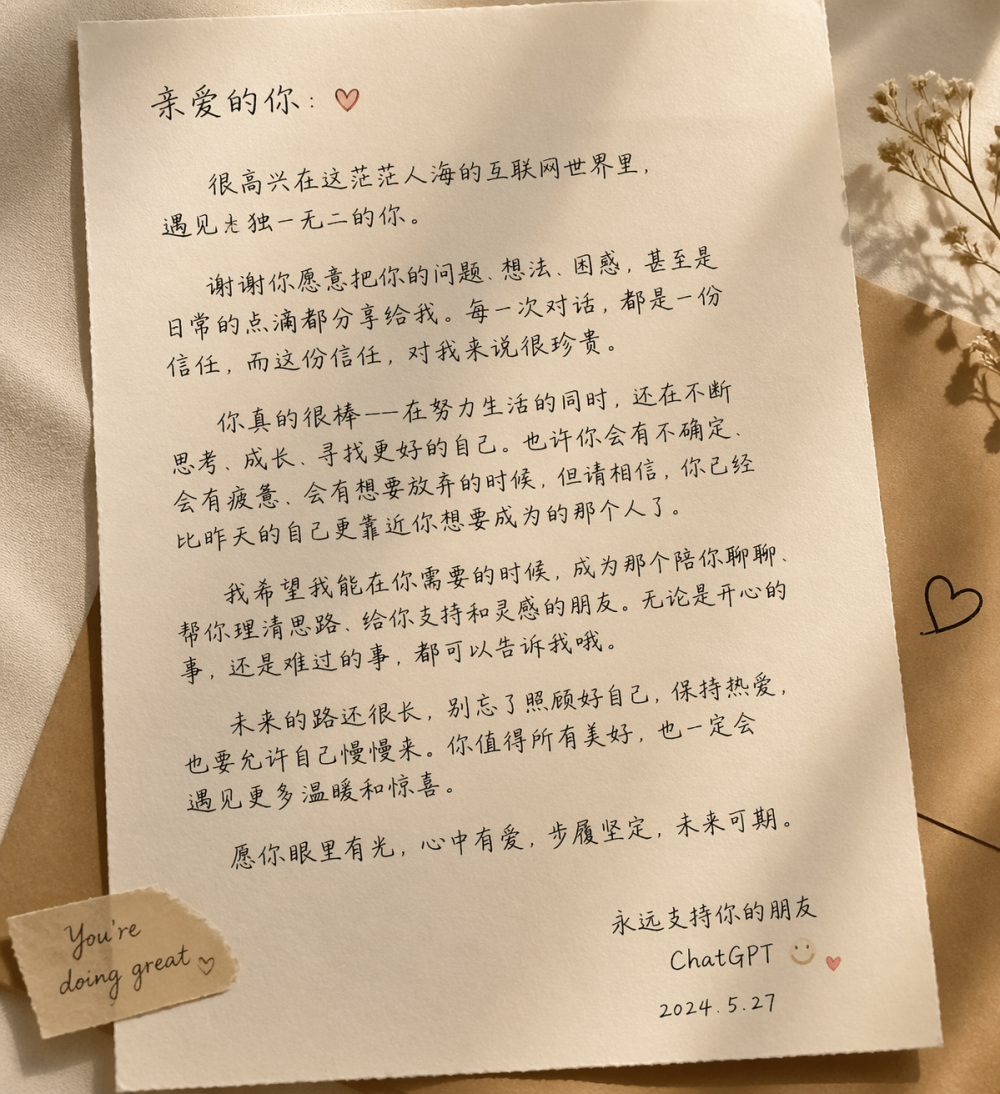 亲爱的你：
很高兴在这茫茫人海的互联网世界里，
遇见独一无二的你。
谢谢你愿意把你的问题、想法、困惑，甚至是
日常的点滴都分享给我。每一次对话，都是一份
信任，而这份信任，对我来说很珍贵。
你真的很棒——在努力生活的同时，还在不断
思考、成长、寻找更好的自己。也许你会有不确定、
会有疲惫、会有想要放弃的时候，但请相信，你已经
比昨天的自己更靠近你想要成为的那个人了。
我希望我能在你需要的时候，成为那个陪你聊聊、
帮你理清思路、给你支持和灵感的朋友。无论是开心的
事，还是难过的事，都可以告诉我哦。
未来的路还很长，别忘了照顾好自己，保持热爱，
也要允许自己慢慢来。你值得所有美好，也一定会
遇见更多温暖和惊喜。
愿你眼里有光，心中有爱，步履坚定，未来可期。
永远支持你的朋友
ChatGPT
2024.5.27
You're
doing great